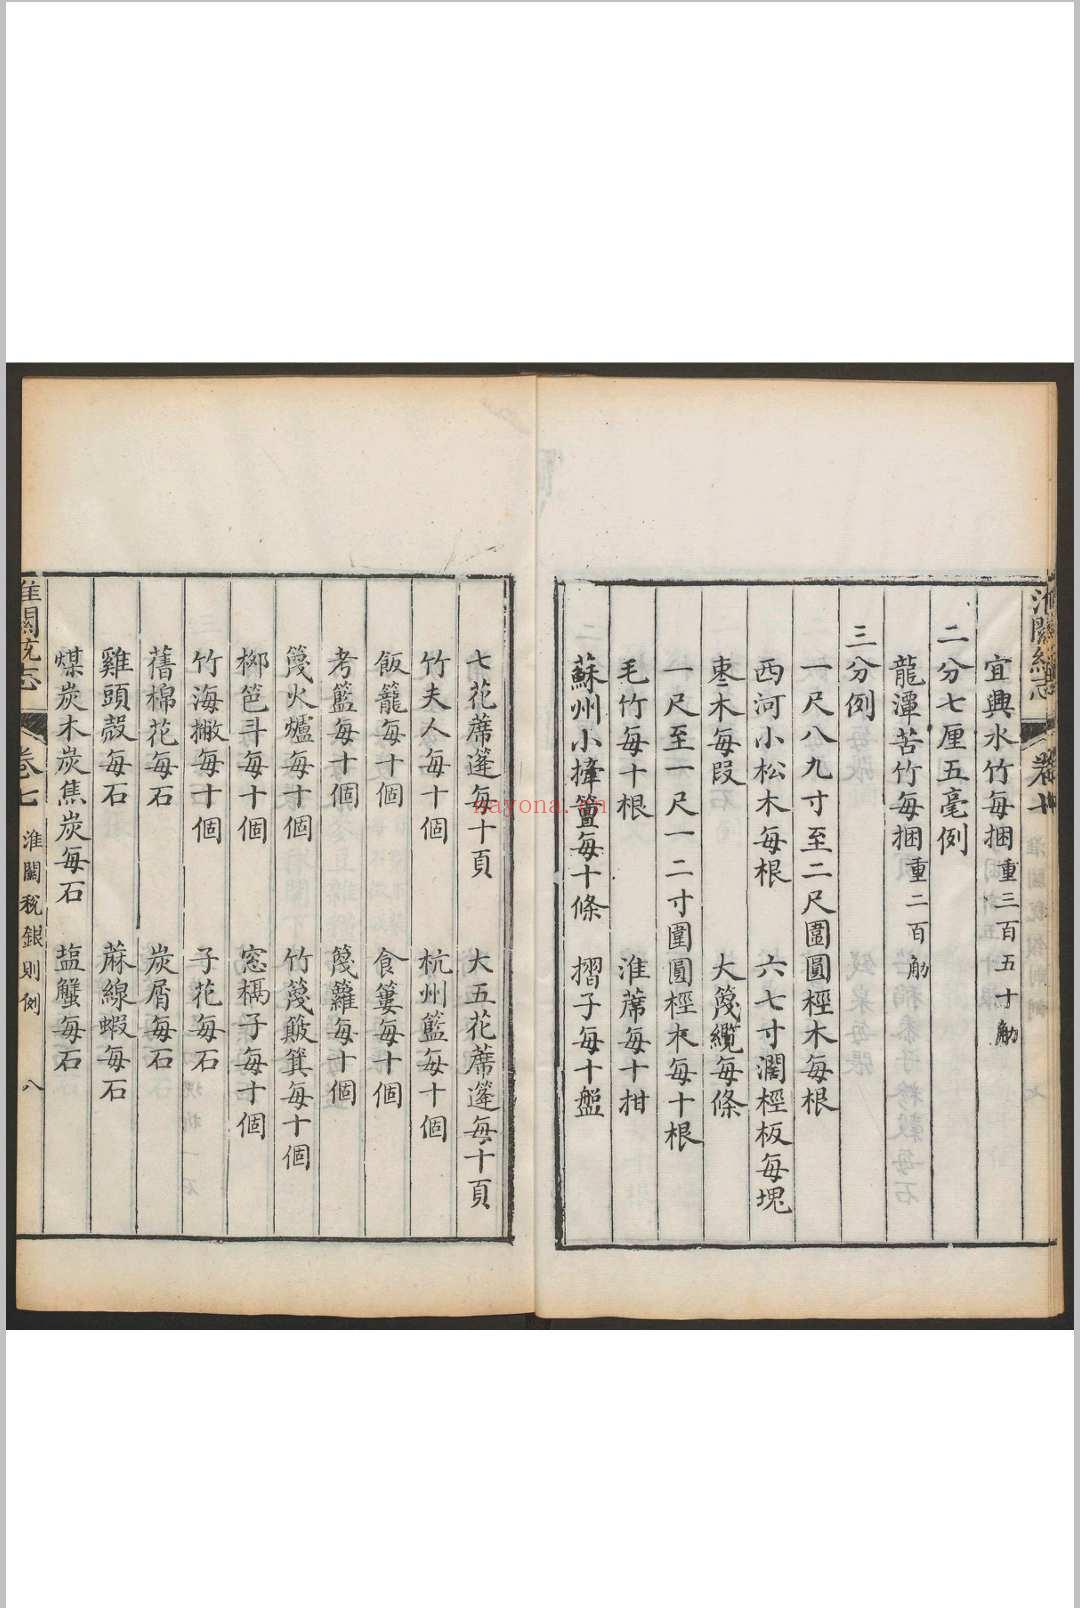 宜興水竹每捆重三百五十觔
二分七厘五毫例
龍潭苦竹每捆重二百觔
三分例
一尺八九寸至二尺圍圓桱木每根
西河小松木每根 六七寸濶桱板每塊
枣木每段 大篾纜每條
一尺至一尺一二寸圍圓桱木每十根
毛竹每十根 淮蓆每十柑
蘇州小撞簹每十條 摺子每十盤
七花蓆篷每十頁 大五花蓆篷每十頁
竹夫人每十個 杭州籃每十個
飯籠每十個 食簍每十個
考籃每十個 篾籮每十個
篾火爐每十個 竹篾簸箕每十個
栁笆斗每十個 窓槅子每十個
竹海撇每十個 子花每石
舊棉花每石 炭屑每石
雞頭殼每石 蔴線蝦每石
煤炭木炭焦炭每石 塩蟹每石
淮關統志 卷七 淮關稅銀則例 八
nayona.cn